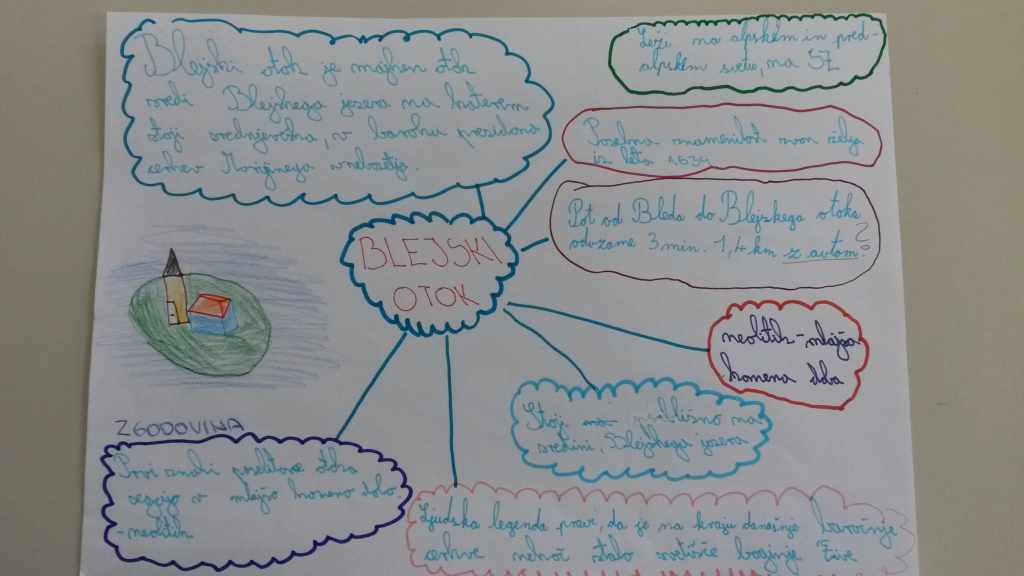 Blejski otok je majhen otok
sredi Blejskega jezera na katerem
stoji srednjeveška, v baroku prezidana
cerkev Marijinega vnebovzetja.
Leži na alpskem in pred-
alpskem svetu, na SZ
Posebna znamenitost zvon želja
iz leta 1534
Pot od Bleda do Blejskega otoka
odvzame 3 min. 1,4 km z avtom?
BLEJSKI
OTOK
neolitik-mlajša
kamena doba
Stoji približno na
sredini, Blejskega jezera
ZGODOVINA
Prvi znaki poselitve otoka
segajo v mlajšo kameno dobo
-neolitik
Ljudska legenda pravi, da je na kraju današnje baročnje
cerkve nekoč stalo svetišče boginje Žive